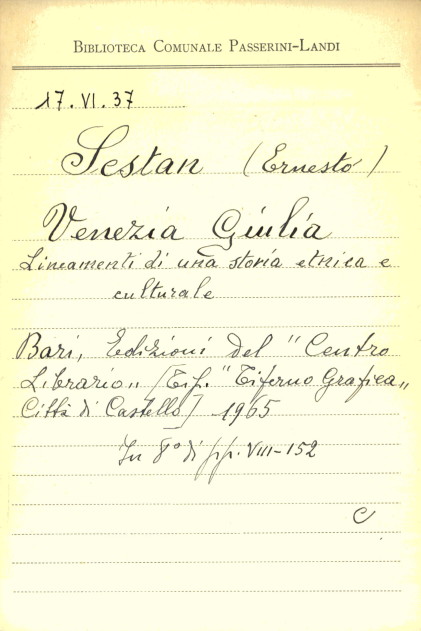 BIBLIOTECA COMUNALE PASSERINI-LANDI
17. VI. 37
Sestan (Ernesto)
Venezia Giulia
Lineamenti di una storia etnica e
culturale
Bari, Edizioni del "Centro
Librario„ [Tip. "Tiferno Grafica„
Città di Castello] 1965
In 8° di pp. VIII-152
C